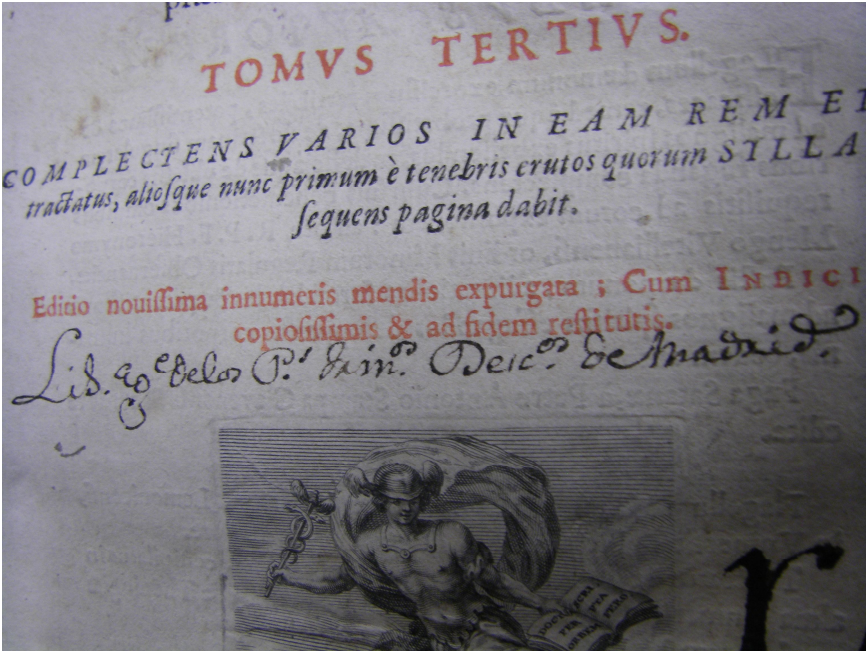 TOMVS TERTIVS.
COMPLECTENS VARIOS IN EAM REM ET
tractatus, aliosque nunc primum è tenebris erutos quorum SYLLA
sequens pagina dabit.
Editio nouissima innumeris mendis expurgata ; Cum INDICI
copiosissimis & ad fidem restitutis.
Lib. de los P.s trin.os Desc.os de Madrid.
DOCUI
PER PTA
ORDINEM PERO